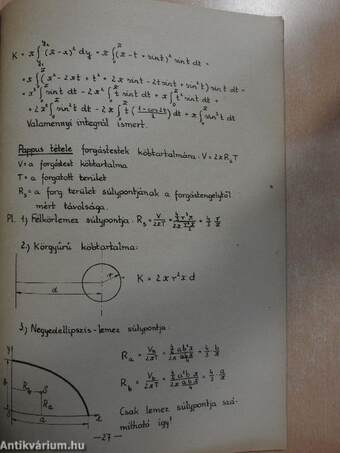 K = π∫(π-x)² dy = π∫(π-t+sint)² sint dt =
= π∫(π² - 2πt + t² + 2π sint - 2t sint + sin²t) sint dt =
= π³∫sint dt - 2π²∫t sint dt + π∫t² sint dt +
+ 2π²∫sin²t dt - 2π∫t(1-cos2t/2)dt + π∫sin³t dt
Valamennyi integrál ismert.
Pappus tétele forgástestek köbtartalmára: V = 2πRₛT
V = a forgástest köbtartalma
T = a forgatott terület
Rₛ = a forg. terület súlypontjának a forgástengelytől
mért távolsága.
Pl. 1.) Félkörlemez súlypontja: Rₛ = V/2πT = 4/3 r/π
2.) Körgyűrű köbtartalma:
r
d
K = 2πr²πd
3.) Negyedellipszis-lemez súlypontja:
Rₐ = Vₐ/2πT = 4/3 b/π
R_b = V_b/2πT = 4/3 a/π
R_b
S
Rₐ
a
Csak lemez súlypontja szá-
mítható így!
-27-
Antikvárium.hu